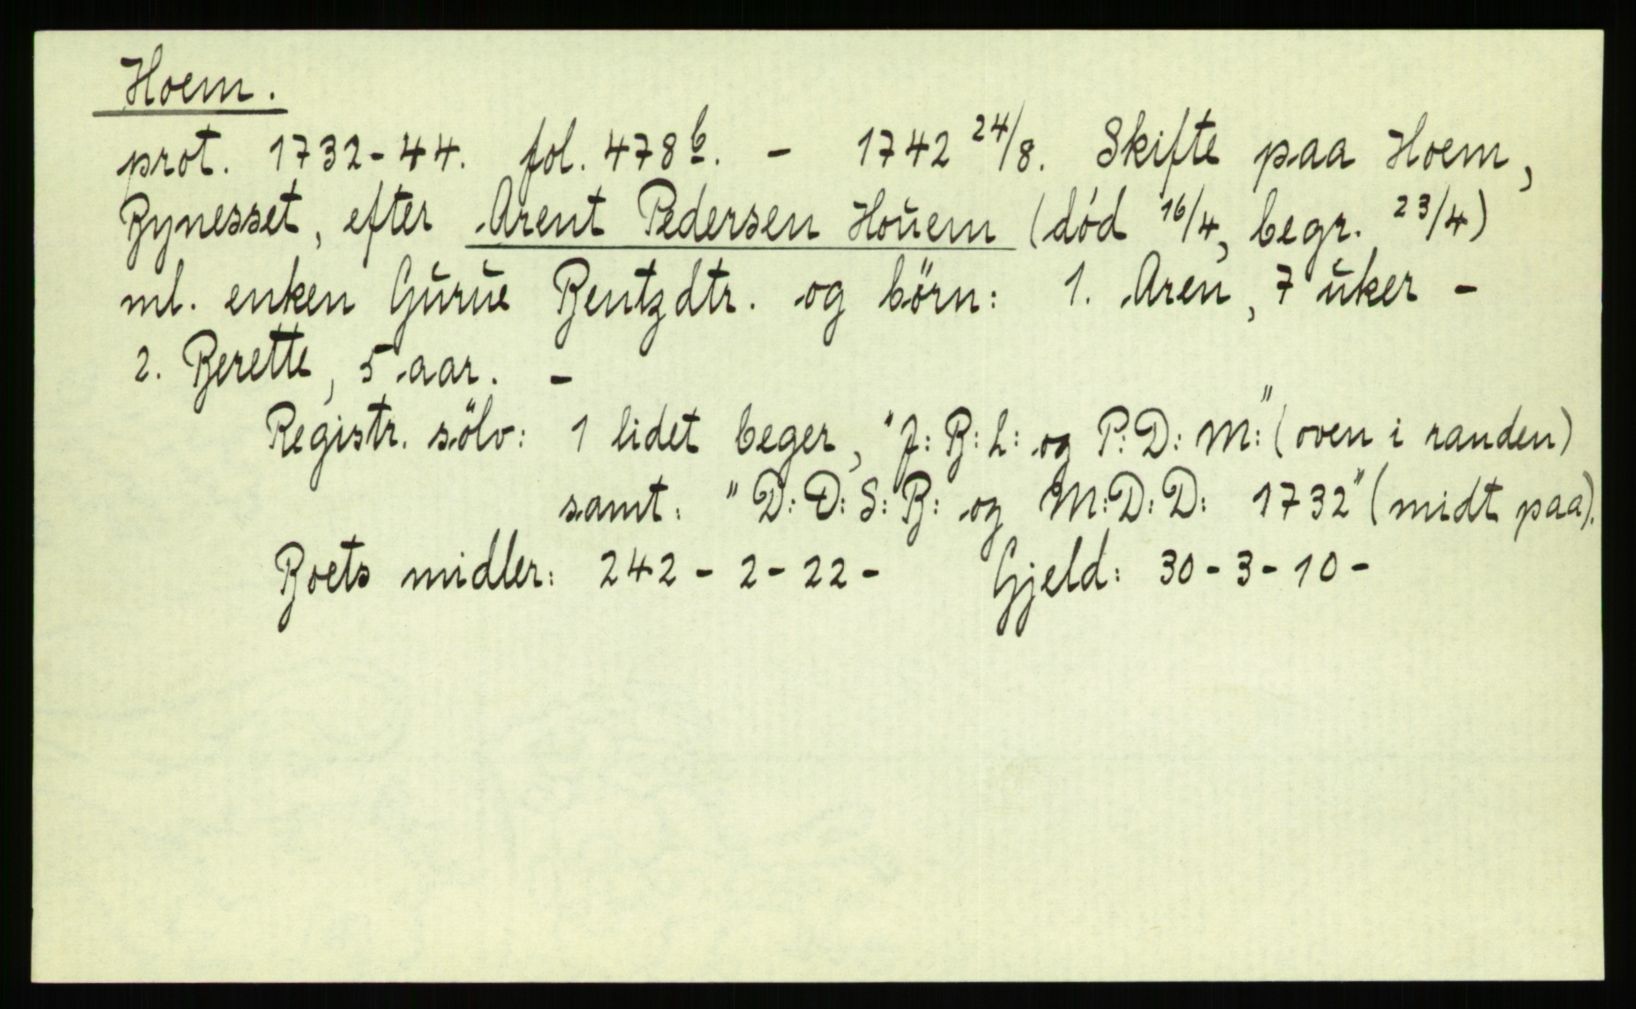 Hoem.
prot. 1732-44. fol. 478b. - 1742 24/8. Skifte paa Hoem,
Bynesset, efter Arent Pedersen Houem (död 16/4, begr. 23/4)
ml. enken Gurue Bentzdtr. og börn: 1. Aren, 7 uker -
2. Berette, 5 aar. -
Registr. sölv: 1 lidet beger, "J: B: L: og P: D: M:" (oven i randen)
samt: "D: D: S: B: og M: D: D: 1732" (midt paa).
Boets midler: 242 - 2 - 22 - Gjeld: 30 - 3 - 10 -